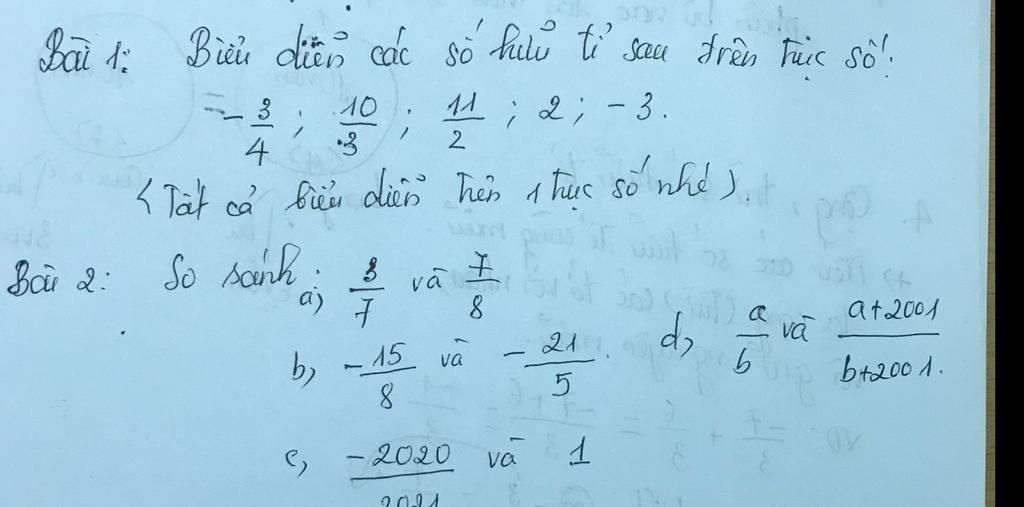 Bài 1: Biểu diễn các số hữu tỉ sau trên trục số:
-3/4 ; 10/3 ; 11/2 ; 2 ; -3.
(Tất cả biểu diễn trên 1 trục số nhé).
Bài 2: So sánh: a, 3/7 và 7/8
b, -15/8 và -21/5. d, a/b và a+2001/b+2001.
c, -2020/2021 và 1